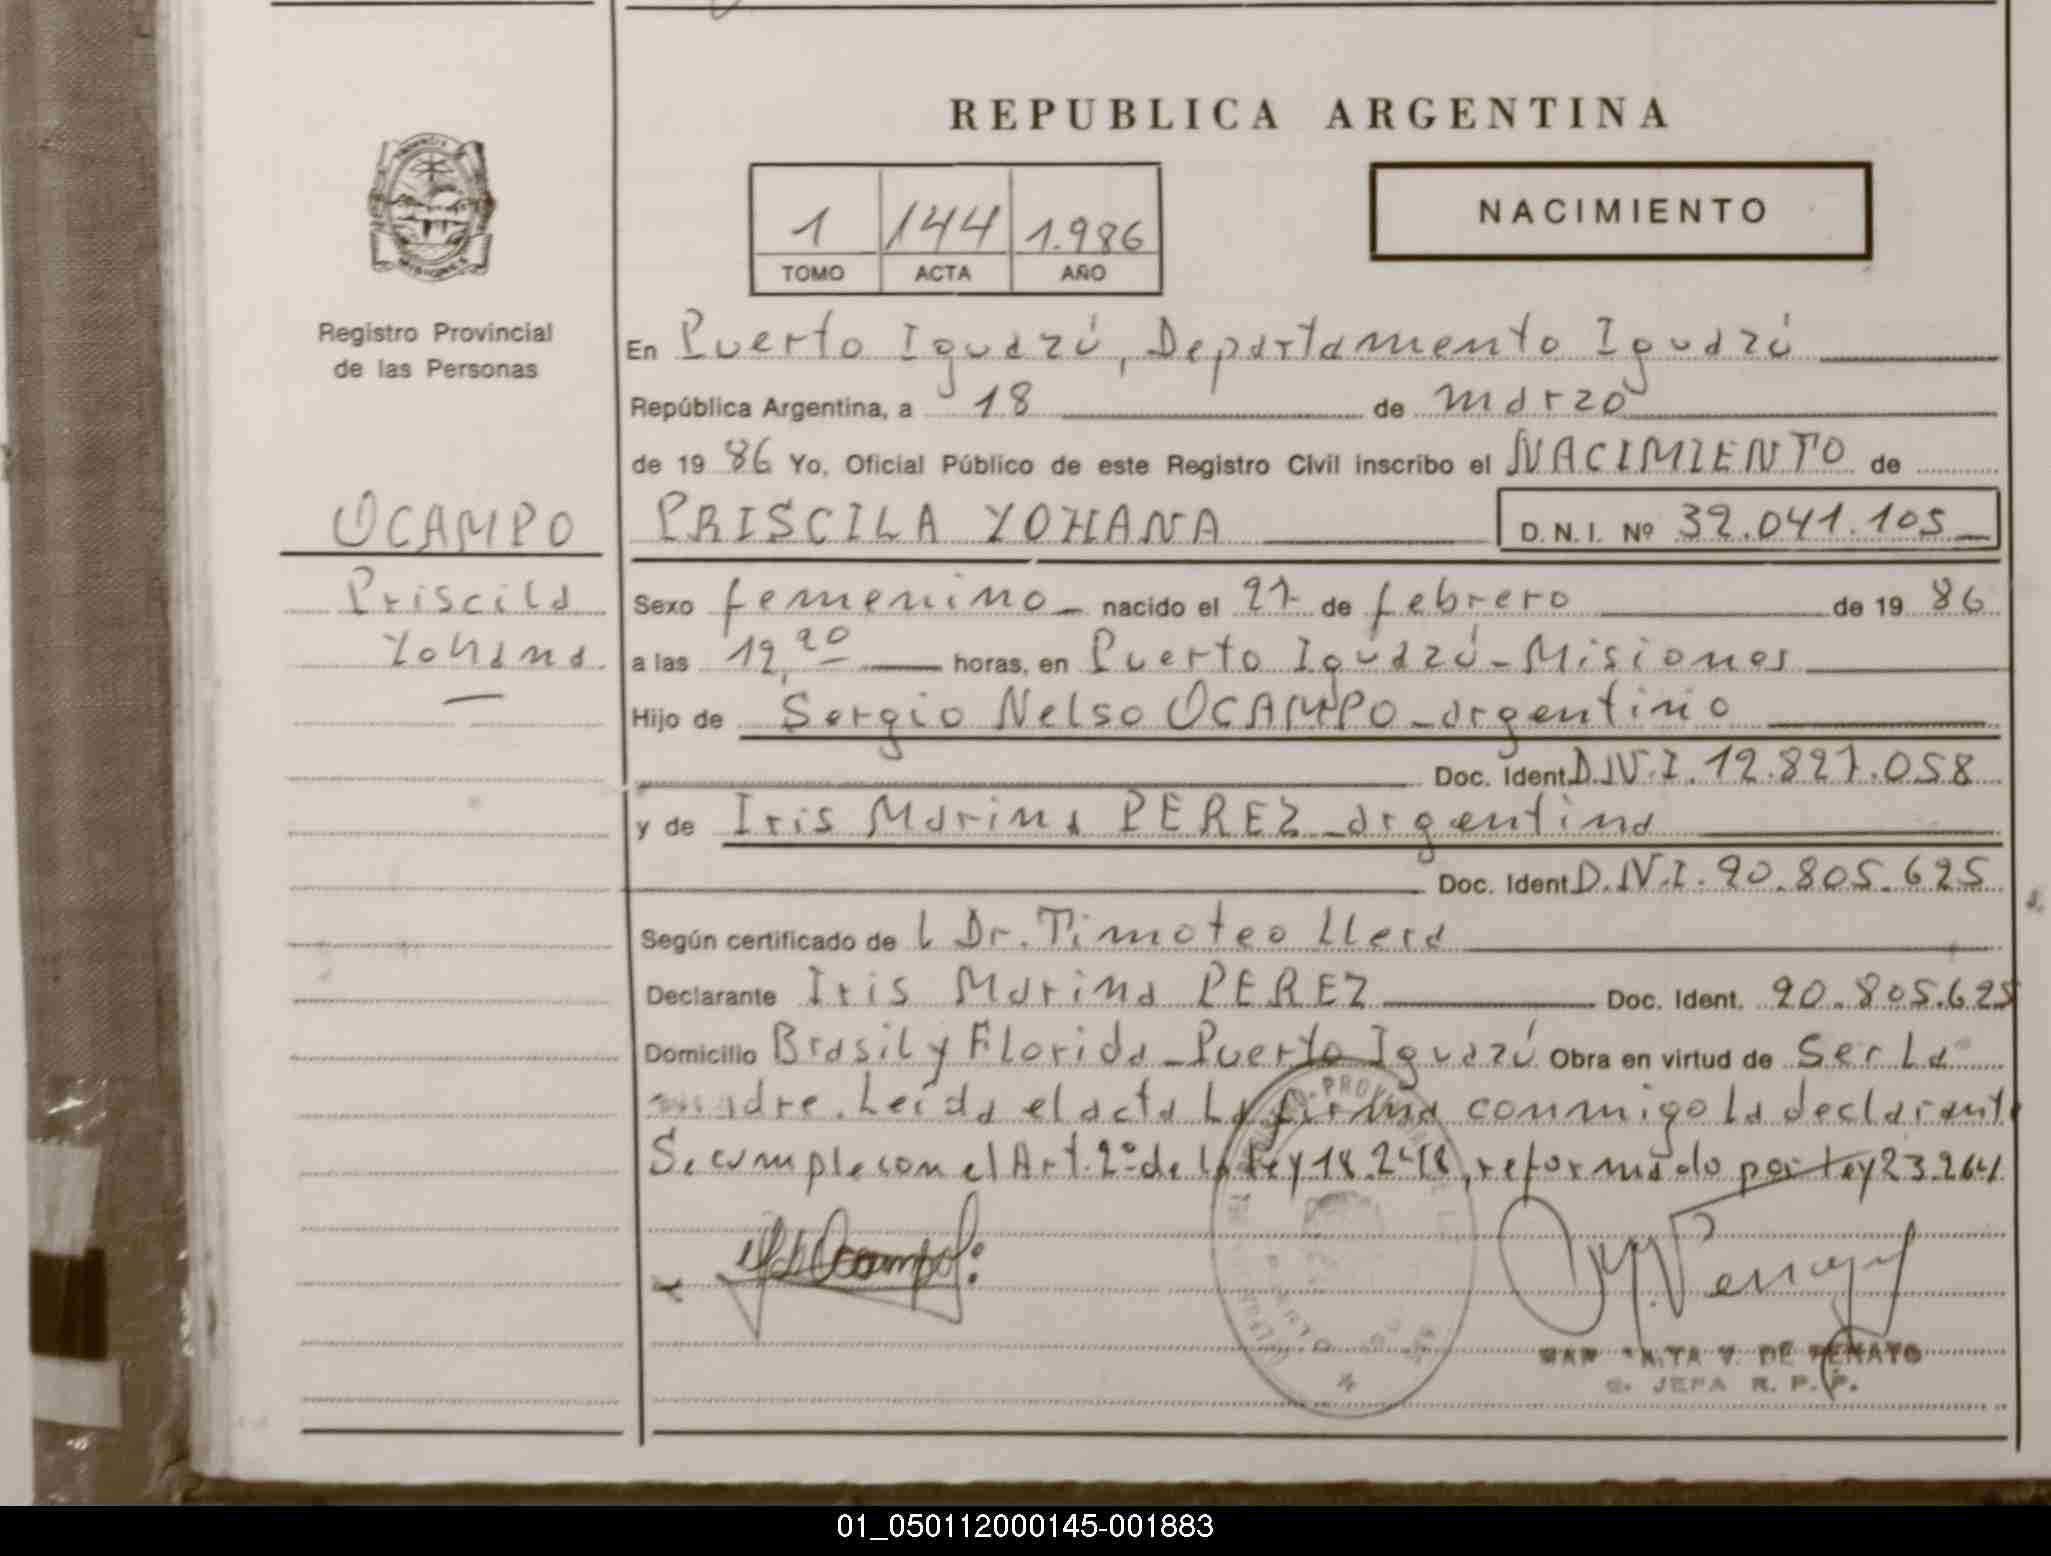 REPUBLICA ARGENTINA
NACIMIENTO
1 144 1.986
TOMO ACTA AÑO
PROVINCIA
MISIONES
Registro Provincial
de las Personas
En Puerto Iguazú, Departamento Iguazú
República Argentina, a 18 de marzo
de 19 86 Yo, Oficial Público de este Registro Civil inscribo el NACIMIENTO de
OCAMPO
PRISCILA YOHANA D. N. I. Nº 32.041.105
Priscila
Yohana
Sexo femenino nacido el 27 de febrero de 19 86
a las 12,20 horas, en Puerto Iguazú - Misiones
Hijo de Sergio Nelso OCAMPO - argentino
Doc. Ident. D.N.I. 12.827.058
y de Iris Marina PEREZ - argentina
Doc. Ident. D.N.I. 20.805.625
Según certificado de l Dr. Timoteo Llera
Declarante Iris Marina PEREZ Doc. Ident. 20.805.625
Domicilio Brasil y Florida - Puerto Iguazú Obra en virtud de ser la
madre. Leída el acta la firma conmigo la declarante
Se cumple con el Art. 2º de la Ley 18.248, reformado por Ley 23.264
Ocampo
V. DE PENAYO
JEFA R. P. P.
01_050112000145-001883